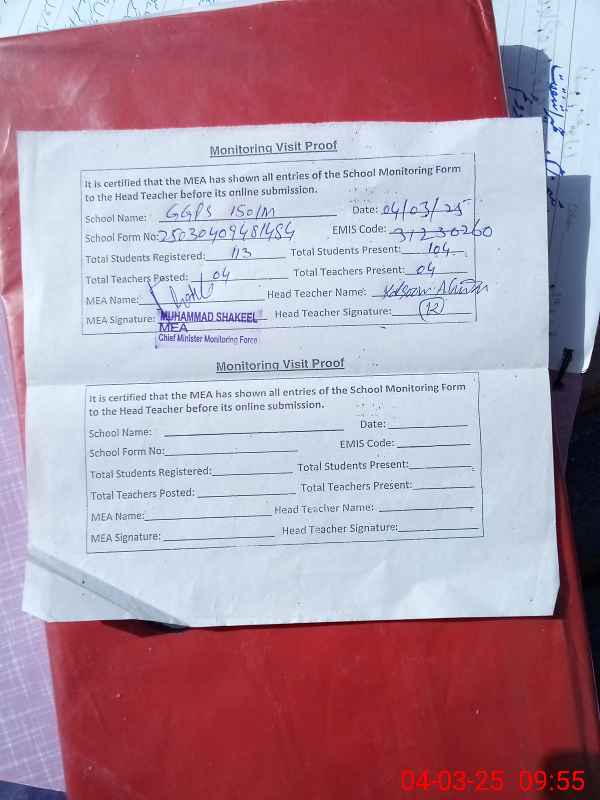 Monitoring Visit Proof
It is certified that the MEA has shown all entries of the School Monitoring Form
to the Head Teacher before its online submission.
School Name: GGPS 150/M Date: 04/03/25
School Form No: 25030409481484 EMIS Code: 31230260
Total Students Registered: 113 Total Students Present: 104
Total Teachers Posted: 04 Total Teachers Present: 04
MEA Name: Head Teacher Name:
MEA Signature: Head Teacher Signature:
MUHAMMAD SHAKEEL
MEA
Chief Minister Monitoring Force
Monitoring Visit Proof
It is certified that the MEA has shown all entries of the School Monitoring Form
to the Head Teacher before its online submission.
School Name: Date:
School Form No: EMIS Code:
Total Students Registered: Total Students Present:
Total Teachers Posted: Total Teachers Present:
MEA Name: Head Teacher Name:
MEA Signature: Head Teacher Signature:
04-03-25 09:55